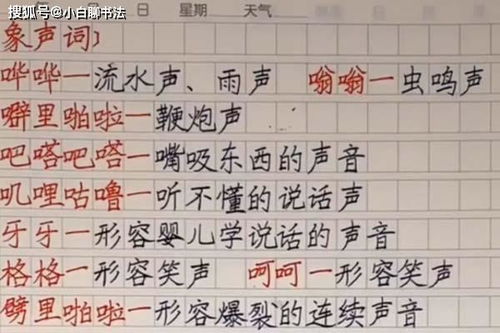 搜狐号@小白聊书法
日 星期 天气
象声词)
哗哗一流水声、雨声 嗡嗡一虫鸣声
噼里啪啦一鞭炮声
吧嗒吧嗒一嘴吸东西的声音
叽哩咕噜一听不懂的说话声
牙牙一形容婴儿学说话的声音
格格一形容笑声 呵呵一形容笑声
劈里啪啦一形容爆裂的连续声音